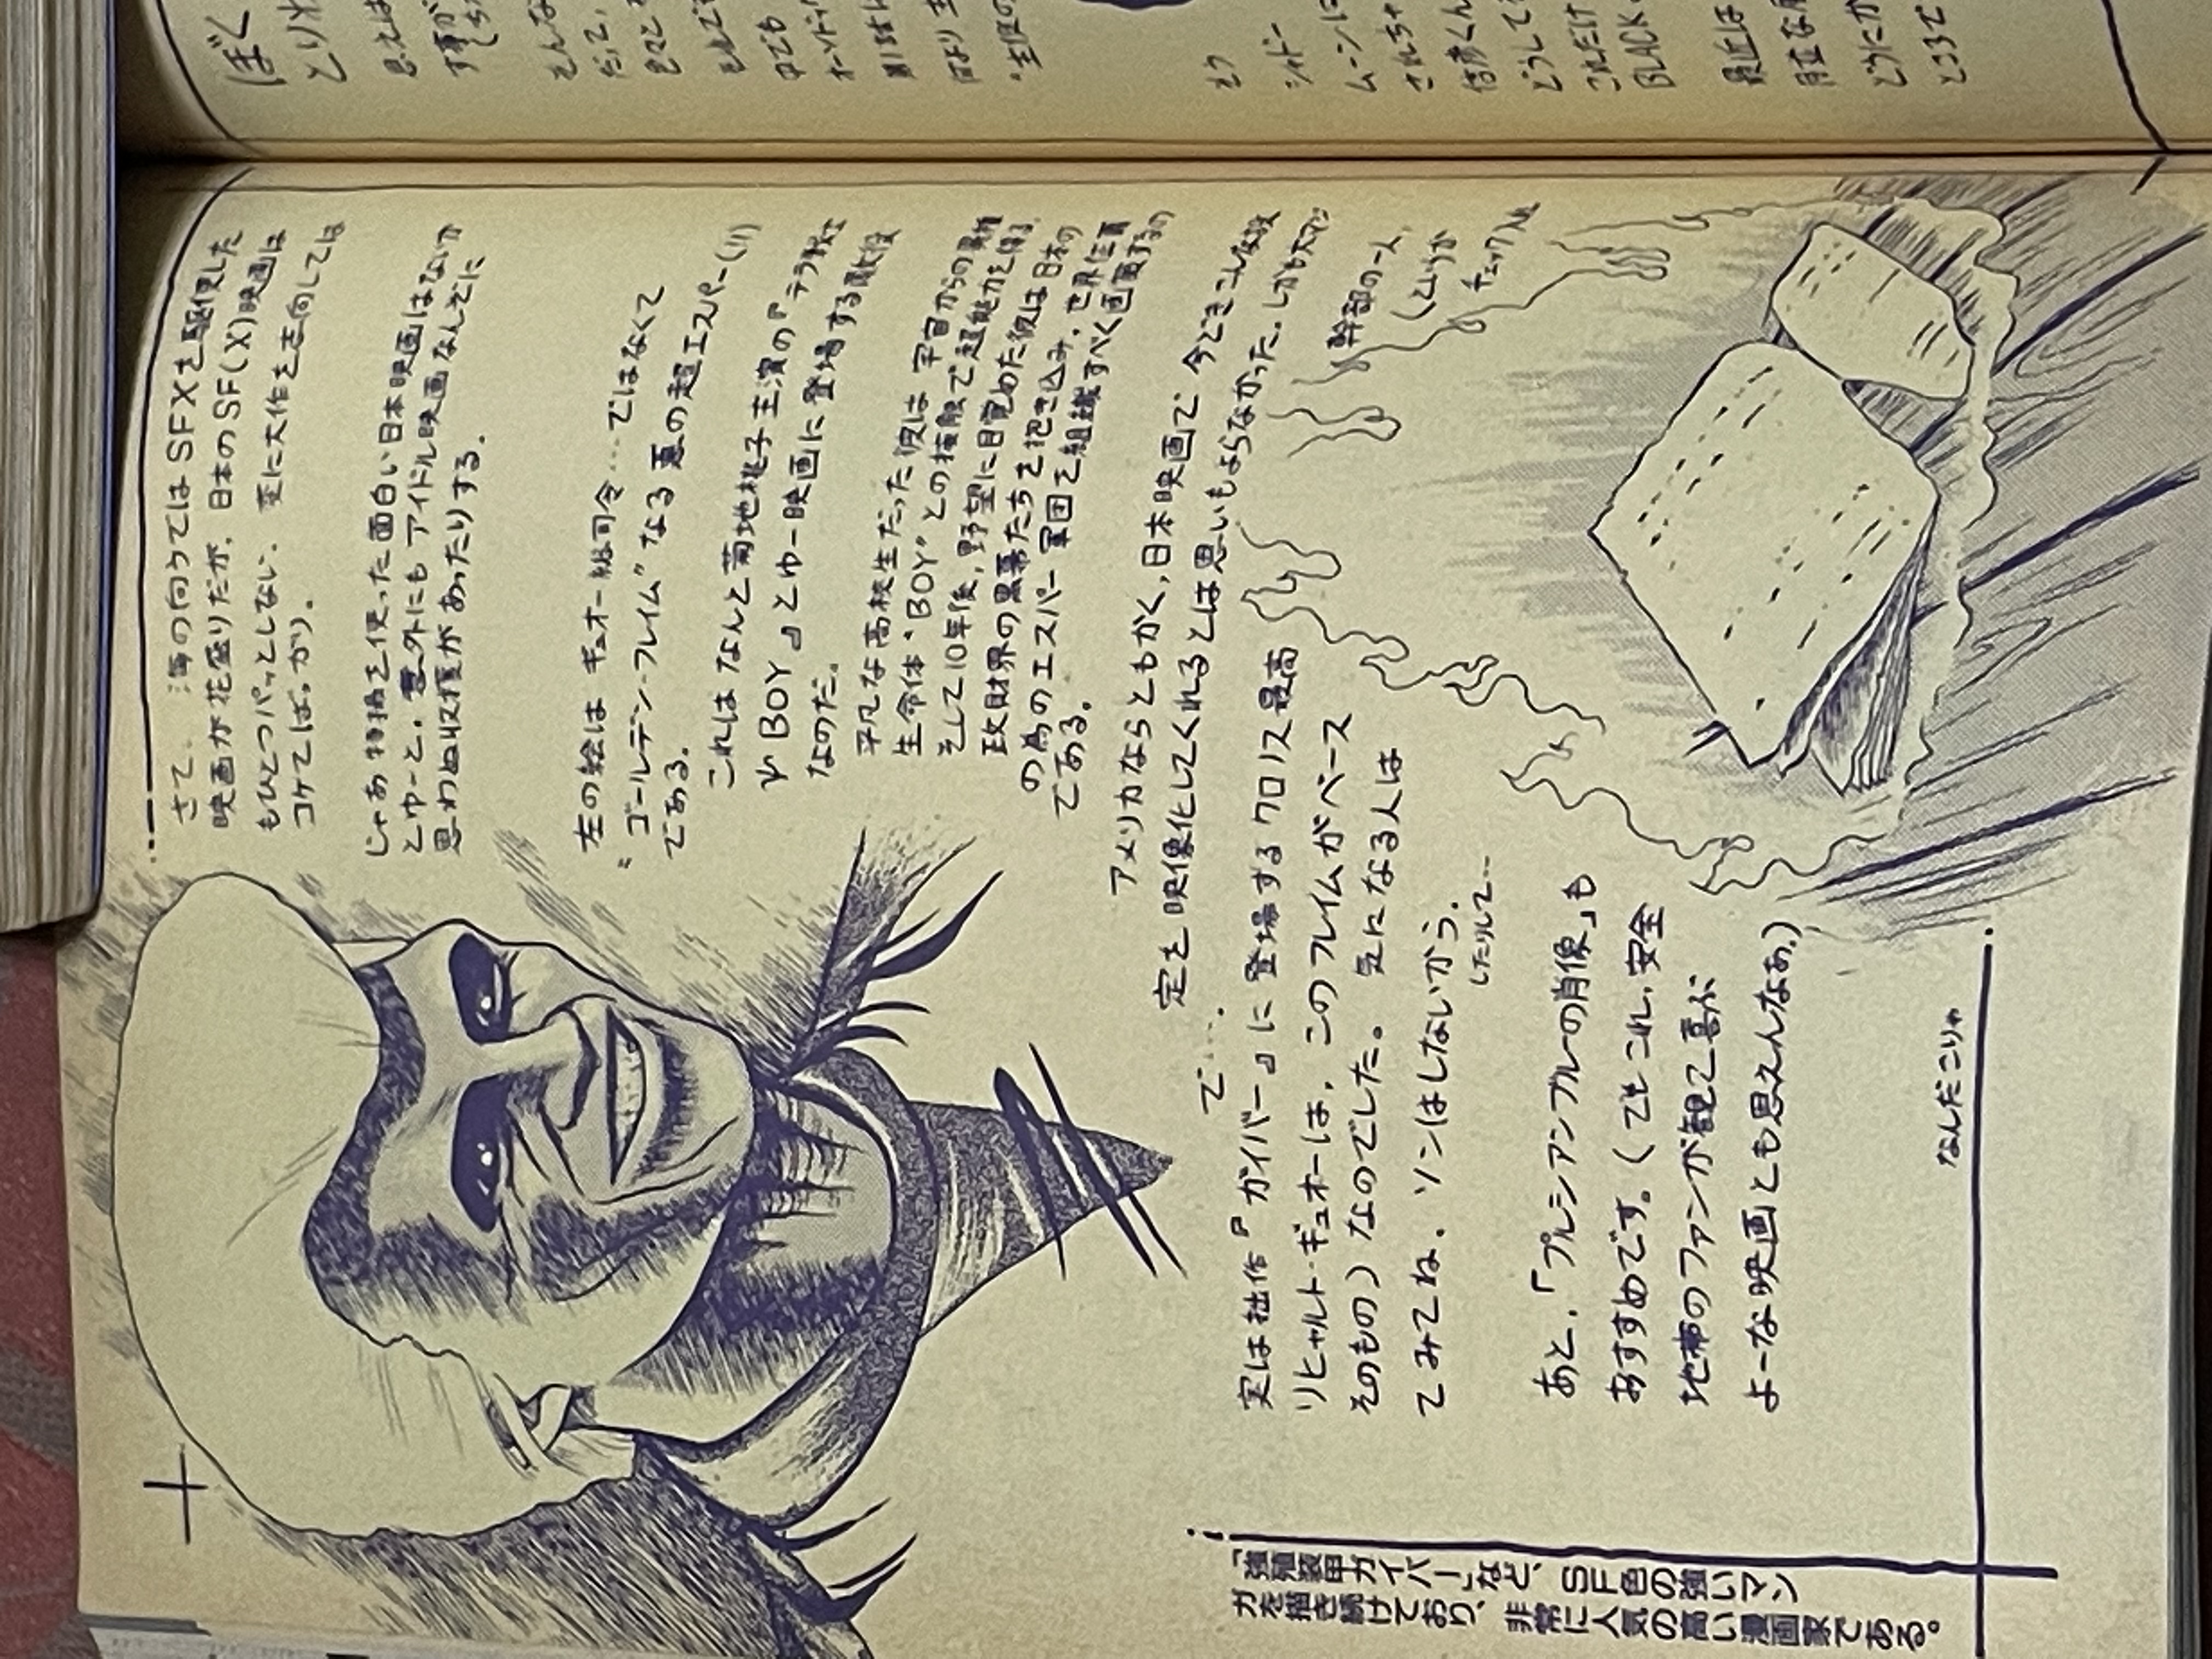 さて、海の向うではSFXを駆使した
映画が花盛りだが、日本のSF(X)映画は
もひとつパッとしない。変に大作を志向しては
コケてばっか)。
じゃあ特撮を使った面白い日本映画はないか
とゆーと、意外にもアイドル映画なんぞに
思わぬ収穫があったりする。
左の絵はギュオー総司令…ではなくて
"ゴールデン・フレイム"なる悪の超エスパー(!!)
である。
これはなんと菊地桃子主演の『テラ戦士
ΨBOY』とゆー映画に登場する敵役
なのだ。
平凡な高校生だった彼は宇宙からの
生命体"BOY"との接触で超能力を得る
そして10年後、野望に目覚めた彼は日本の
政財界の黒幕たちを抱き込み、世界征覇
の為のエスパー軍団を組織すべく画策するの
である。
アメリカならともかく、日本映画で今どきこんな設
定を映像化してくれるとは思いもよらなかった。しかも大マジ
で…。
実は拙作『ガイバー』に登場するクロノス最高
幹部の一人、
リヒャルト・ギュオーは、このフレイムがベース
(とゆーか
そのもの)なのでした。気になる人は
チェック入れ
てみてね、ソンはしないから。
したりして…
あと、「プルシアンブルーの肖像」も
おすすめです。(でもこれ、安全
地帯のファンが観て喜ぶ
よーな映画とも思えんなあ。)
なんだこりゃ
「強殖装甲ガイバー」など、SF色の強いマン
ガを描き続けており、非常に人気の高い漫画家である。
ぼく
とりわ
そんな
だって、
それで
中でも
何より主
"主役の
もう
シャドー
ムーンに
されちゃ
信彦くん
どうして
これだけ
BLACK
最近は
どうにか
ところで